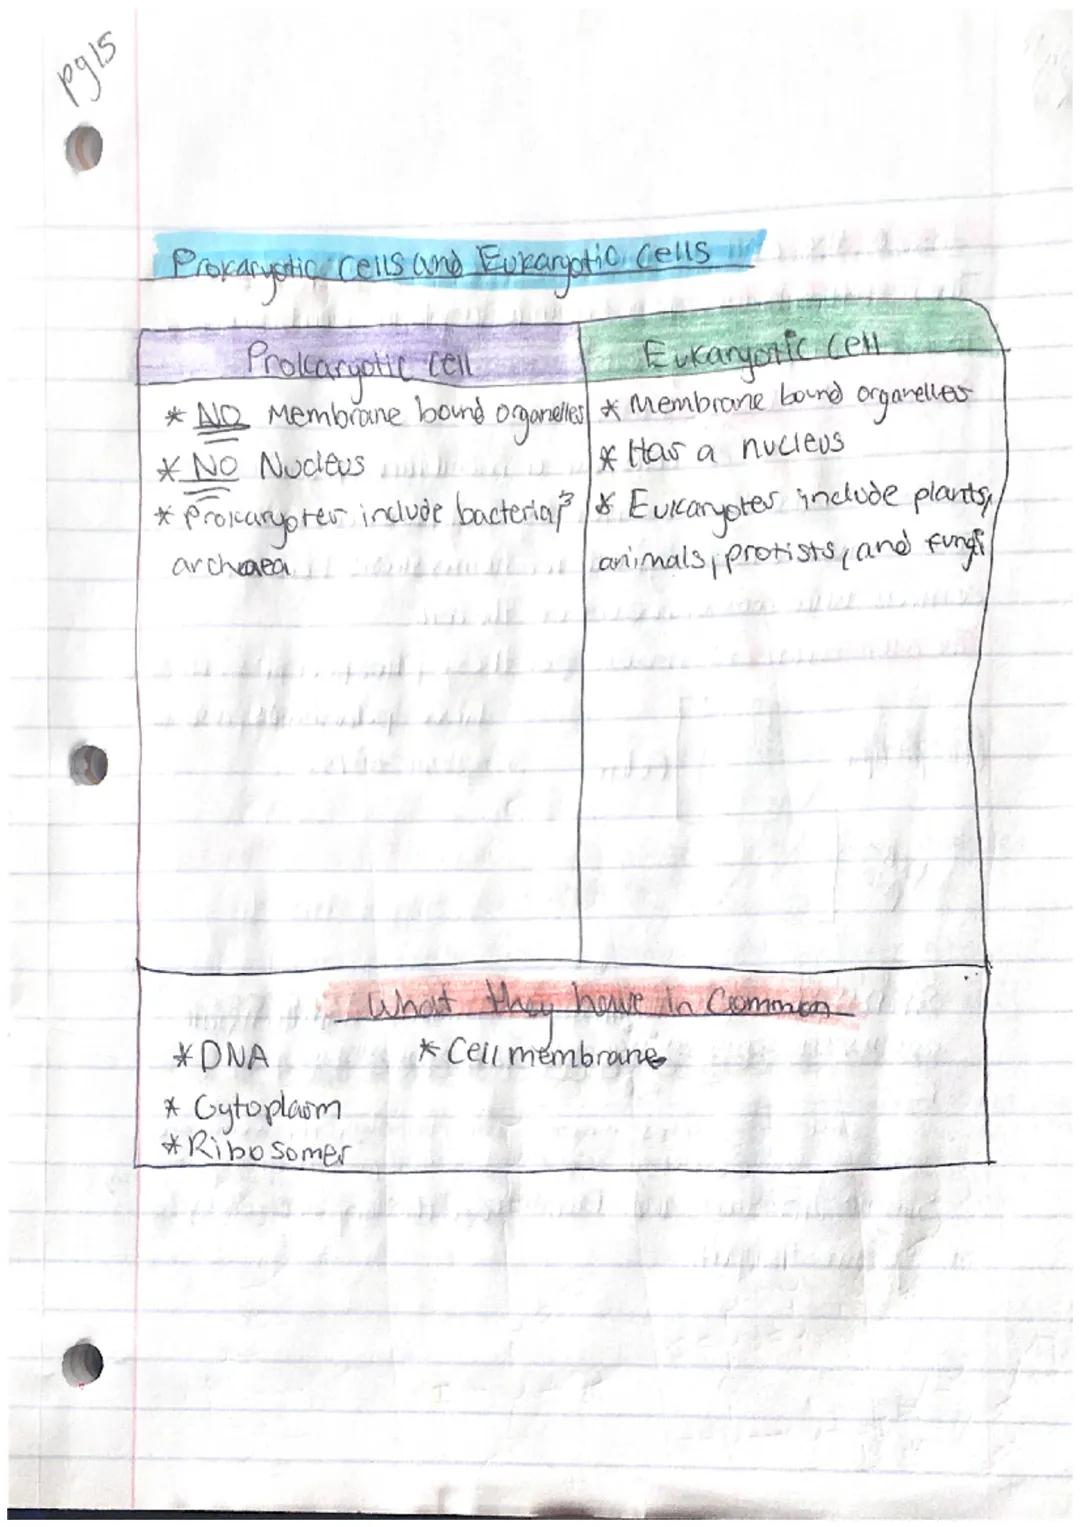 pg15
Prokaryotic Cells and Eukaryotic Cells
Prokaryotic cell
* NO Membrane bound organelles
* NO Nucleus
* Prokaryotes include bacteria, &
archaea
Eukaryotic Cell
* Membrane bound organelles
* Has a nucleus
* Eukaryotes include plants,
animals, protists, and fungi
What they have in Common
* DNA
* Cytoplasm
* Ribosomes
* Cell membrane